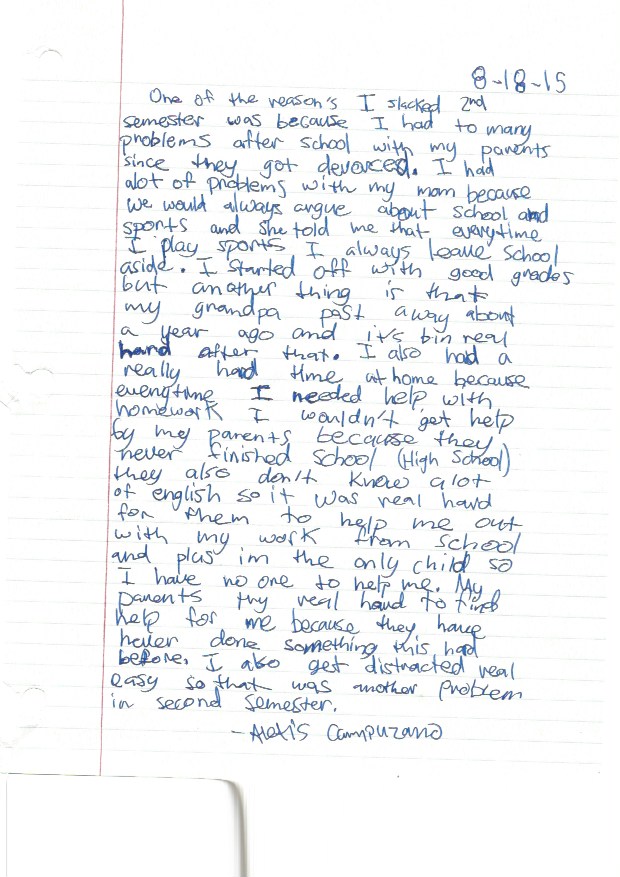 8-18-15
One of the reason's I slacked 2nd
semester was because I had to many
problems after school with my parents
since they got devorced. I had
alot of problems with my mom because
we would always argue about school and
sports and she told me that everytime
I play sports I always leave school
aside. I started off with good grades
but another thing is that
my grandpa past away about
a year ago and it's bin real
hard after that. I also had a
really hard time at home because
everytime I needed help with
homework I wouldn't get help
by my parents because they
never finished school (High School)
they also don't know alot
of english so it was real hard
for them to help me out
with my work from school
and plus im the only child so
I have no one to help me. My
parents try real hard to find
help for me because they have
never done something this hard
before. I also get distracted real
easy so that was another problem
in second semester.
- Alexis Campuzano